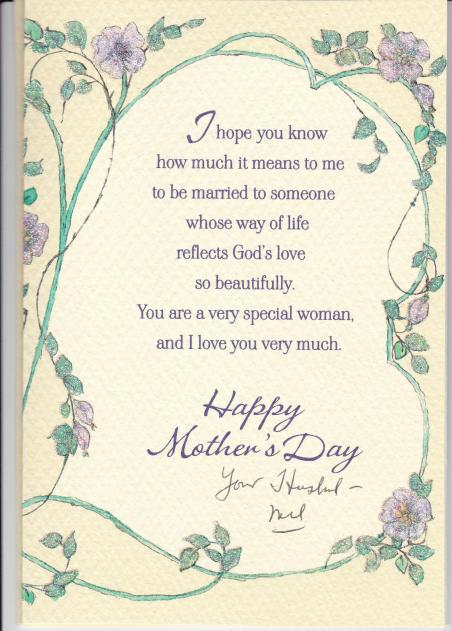 I hope you know
how much it means to me
to be married to someone
whose way of life
reflects God's love
so beautifully.
You are a very special woman,
and I love you very much.
Happy
Mother's Day
Your Husband –